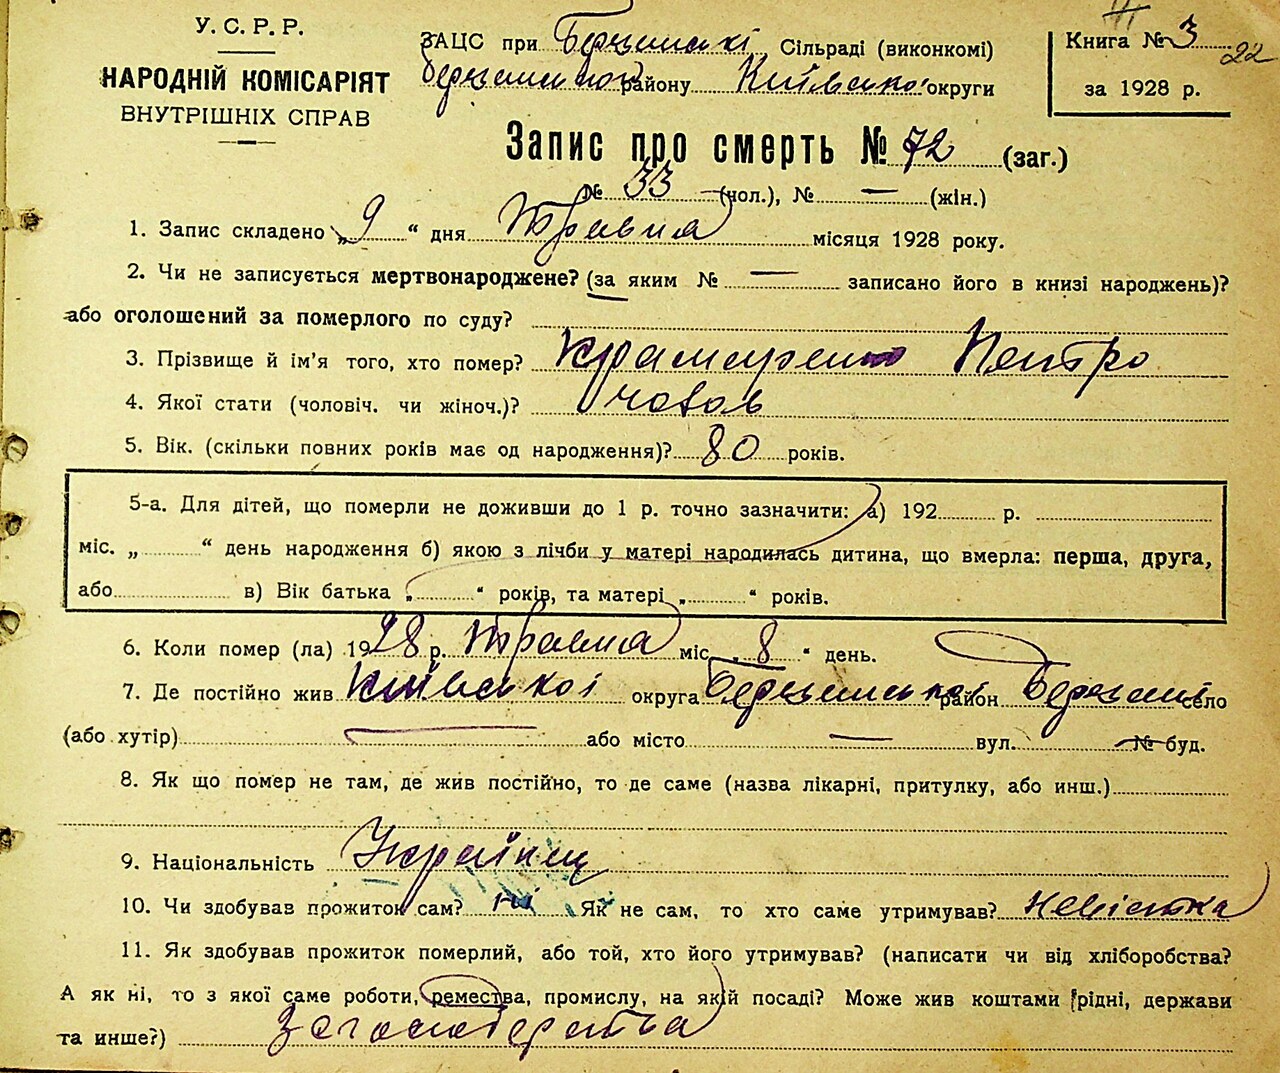 У. С. Р. Р.
НАРОДНІЙ КОМІСАРІЯТ
ВНУТРІШНІХ СПРАВ
ЗАЦС при Сільраді (виконкомі)
району Київської округи
Книга № 3
22
за 1928 р.
Запис про смерть № 72 (заг.)
№ 33 (чол.), № — (жін.)
1. Запис складено „9“ дня Травня місяця 1928 року.
2. Чи не записується мертвонароджене? (за яким № — записано його в книзі народжень)?
або оголошений за померлого по суду?
3. Прізвище й ім'я того, хто помер? Крамаренко Петро
4. Якої стати (чоловіч. чи жіноч.)? чолов
5. Вік. (скільки повних років має од народження)? 80 років.
5-а. Для дітей, що померли не доживши до 1 р. точно зазначити: а) 192 р.
міс. „ “ день народження б) якою з лічби у матері народилась дитина, що вмерла: перша, друга,
або в) Вік батька „ “ років, та матері „ “ років.
6. Коли помер (ла) 1928 р. Травня міс. „8“ день.
7. Де постійно жив Київської округа район село
(або хутір) — або місто — вул. — № буд.
8. Як що помер не там, де жив постійно, то де саме (назва лікарні, притулку, або инш.)
9. Національність Українц
10. Чи здобував прожиток сам? ні Як не сам, то хто саме утримував? невістка
11. Як здобував прожиток померлий, або той, хто його утримував? (написати чи від хліборобства?
А як ні, то з якої саме роботи, ремества, промислу, на якій посаді? Може жив коштами рідні, держави
та инше?)